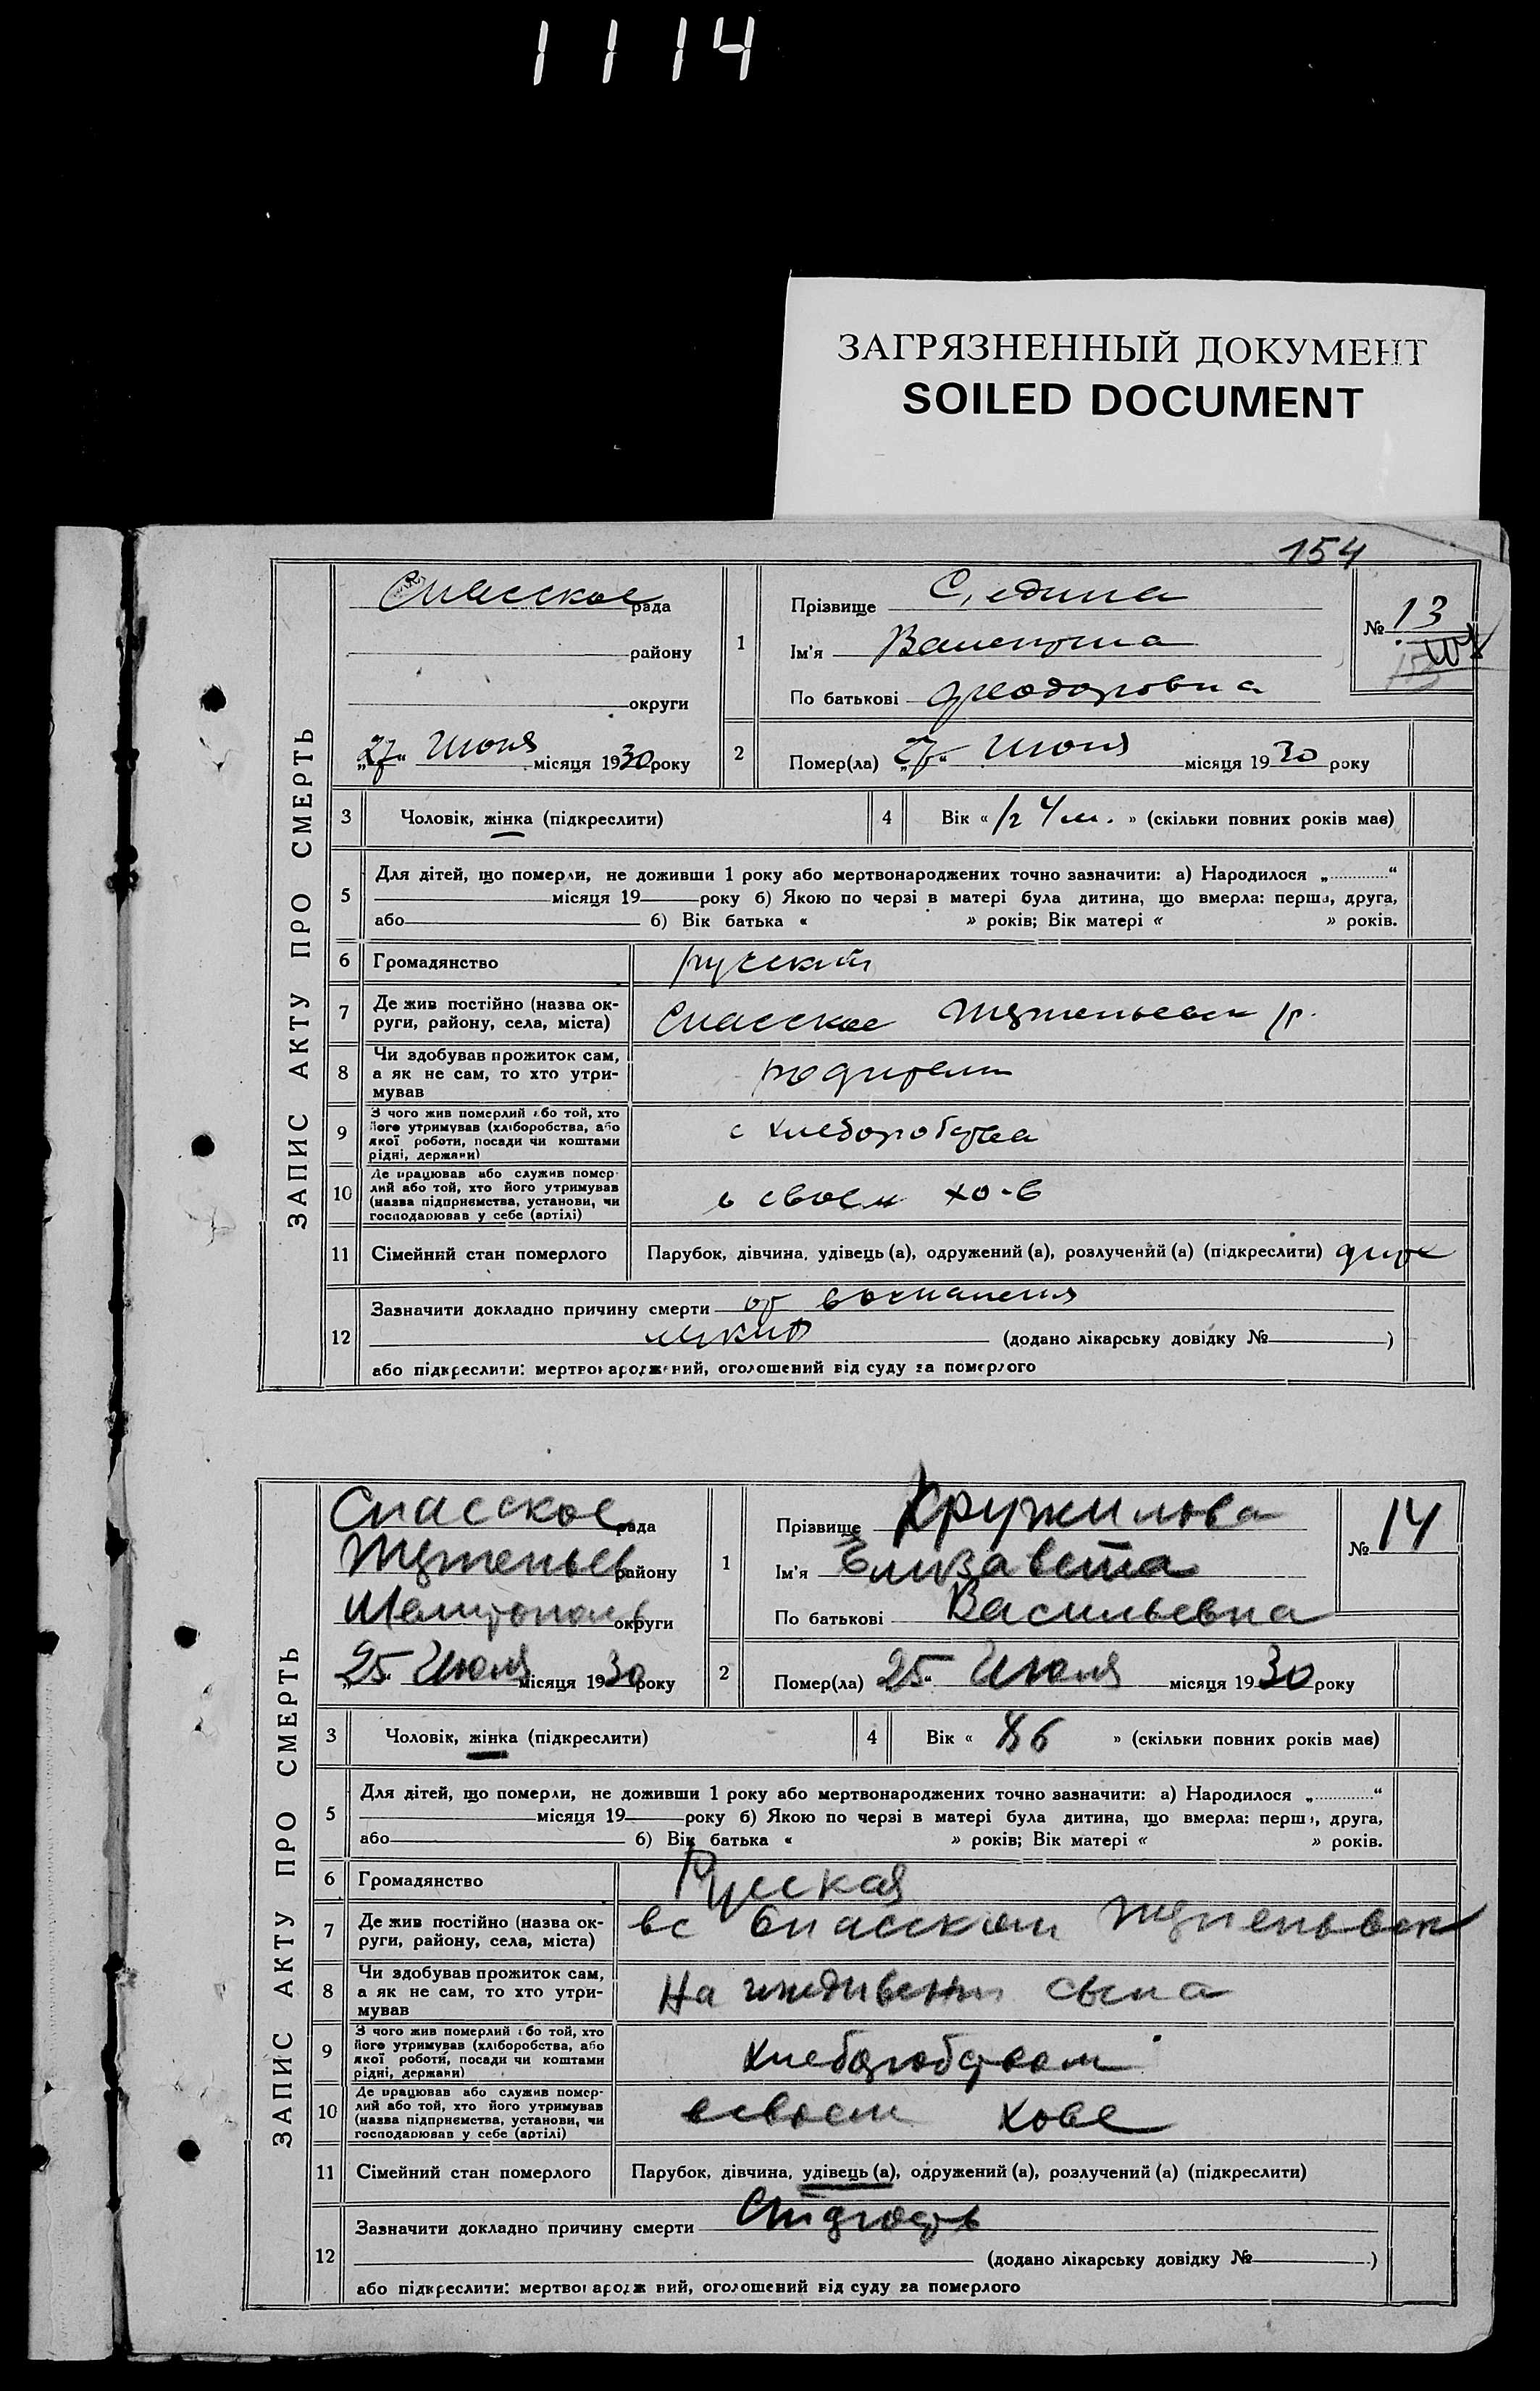 1114
ЗАГРЯЗНЕННЫЙ ДОКУМЕНТ
SOILED DOCUMENT
154
ЗАПИС АКТУ ПРО СМЕРТЬ
Спасское рада
району
округи
„27“ Июня місяця 1930 року
1
Прізвище
Ім'я Валентина
По батькові Феодоровна
№ 13
2
Помер(ла) „27“ Июня місяця 1930 року
3
Чоловік, жінка (підкреслити)
4
Вік « » (скільки повних років має)
5
Для дітей, що померли, не доживши 1 року або мертвонароджених точно зазначити: а) Народилося „ “
місяця 19 року б) Якою по черзі в матері була дитина, що вмерла: перша, друга,
або б) Вік батька « » років; Вік матері « » років.
6
Громадянство русский
7
Де жив постійно (назва ок-
руги, району, села, міста)
Спасское
8
Чи здобував прожиток сам,
а як не сам, то хто утри-
мував
родители
9
З чого жив померлий або той, хто
його утримував (хліборобства, або
якої роботи, посади чи коштами
рідні, держави)
с хлеборобства
10
Де працював або служив помер-
лий або той, хто його утримував
(назва підприємства, установи, чи
господарював у себе (артілі)
в своем хо-в
11
Сімейний стан померлого
Парубок, дівчина, удівець (а), одружений (а), розлучений (а) (підкреслити)
12
Зазначити докладно причину смерти от воспаления
(додано лікарську довідку № )
або підкреслити: мертвонароджений, оголошений від суду за померлого
ЗАПИС АКТУ ПРО СМЕРТЬ
Спасское рада
району
Мелитополь округи
„25“ Июня місяця 1930 року
1
Прізвище Кружилова
Ім'я Елизавета
По батькові Васильевна
№ 14
2
Помер(ла) „25“ Июня місяця 1930 року
3
Чоловік, жінка (підкреслити)
4
Вік « 86 » (скільки повних років має)
5
Для дітей, що померли, не доживши 1 року або мертвонароджених точно зазначити: а) Народилося „ “
місяця 19 року б) Якою по черзі в матері була дитина, що вмерла: перша, друга,
або б) Вік батька « » років; Вік матері « » років.
6
Громадянство Русская
7
Де жив постійно (назва ок-
руги, району, села, міста)
вс Спасском
8
Чи здобував прожиток сам,
а як не сам, то хто утри-
мував
На иждивении сына
9
З чого жив померлий або той, хто
його утримував (хліборобства, або
якої роботи, посади чи коштами
рідні, держави)
Хлеборобством
10
Де працював або служив помер-
лий або той, хто його утримував
(назва підприємства, установи, чи
господарював у себе (артілі)
всвоем хове
11
Сімейний стан померлого
Парубок, дівчина, удівець (а), одружений (а), розлучений (а) (підкреслити)
12
Зазначити докладно причину смерти
(додано лікарську довідку № )
або підкреслити: мертвонароджений, оголошений від суду за померлого